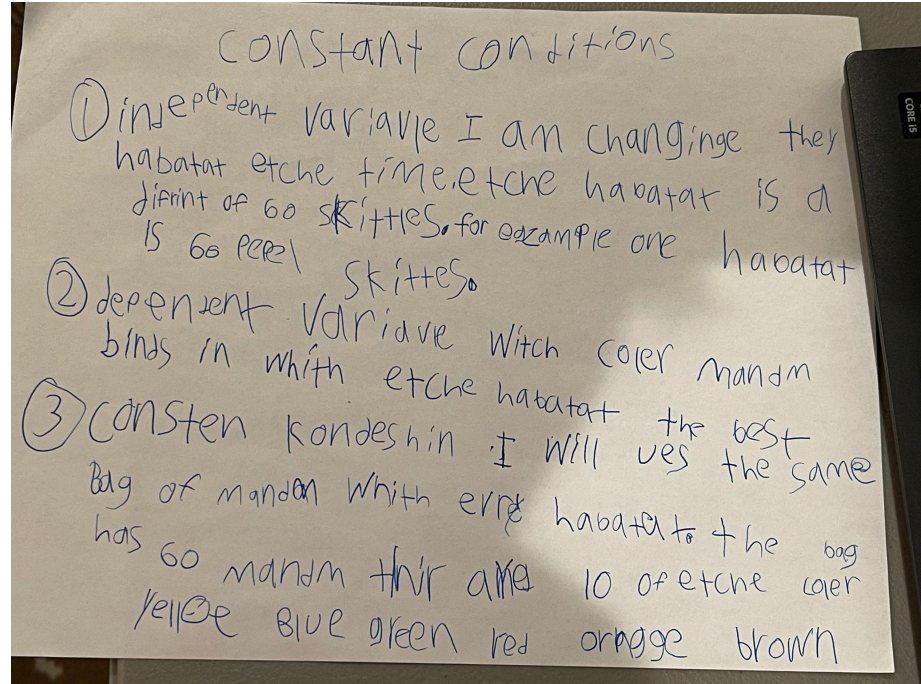 constant conditions
① independent variavle I am changinge they
habatat etche time. etche habatat is a
difrint of 60 skittles. for eazample one habatat
is 60 perel skittes.
② dependent variavle witch coler mandm
binds in whith etche habatat the best
③ consten kondeshin I will ues the same
Bag of mandm whith erre habatat. the bag
has 60 mandm thir are 10 of etche coler
yelloe Blue green red oragge brown
CORE i5